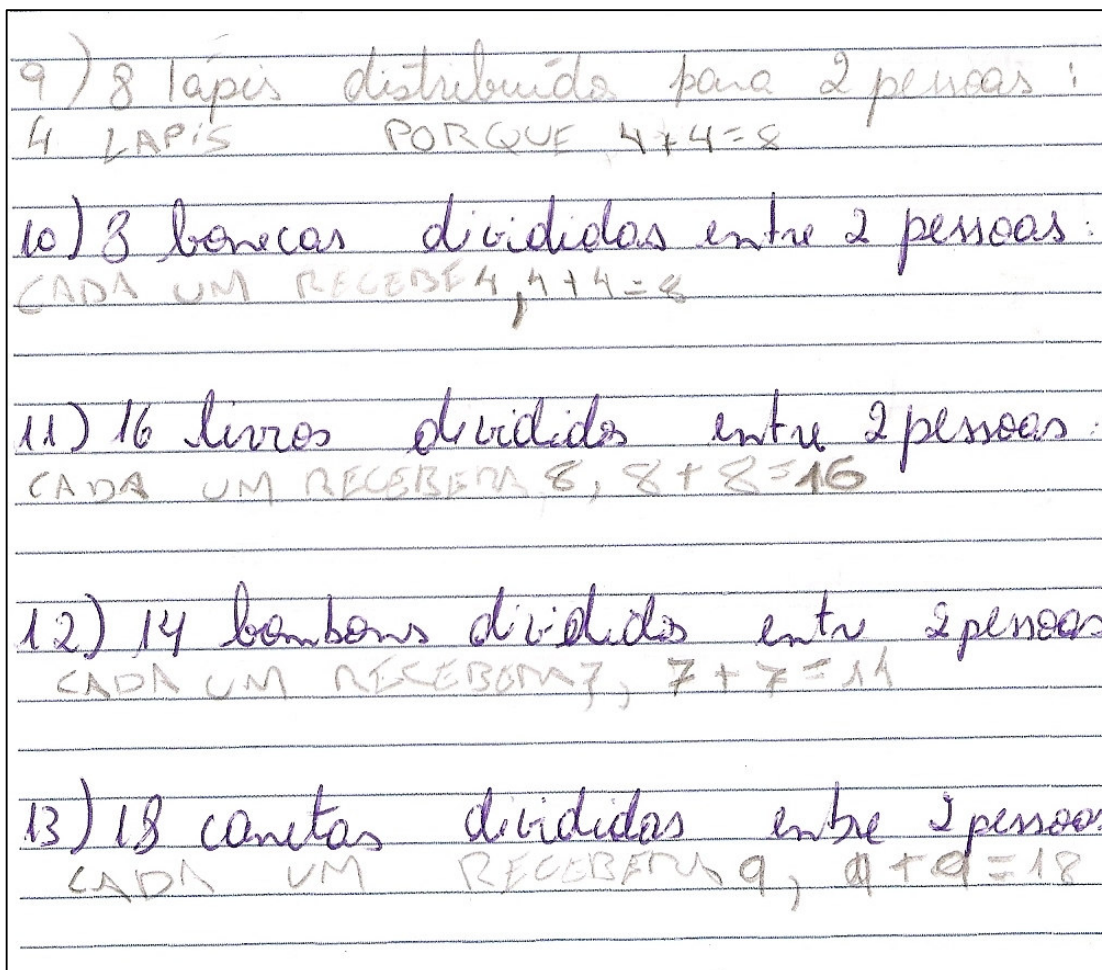 9) 8 lápis distribuído para 2 pessoas:
4 LAPIS PORQUE 4+4=8
10) 8 bonecas divididas entre 2 pessoas:
CADA UM RECEBE 4, 4+4=8
11) 16 livros dividido entre 2 pessoas:
CADA UM RECEBERA 8, 8+8=16
12) 14 bombons dividido entre 2 pessoas
CADA UM RECEBERA 7, 7+7=14
13) 18 canetas divididas entre 2 pessoas
CADA UM RECEBERA 9, 9+9=18